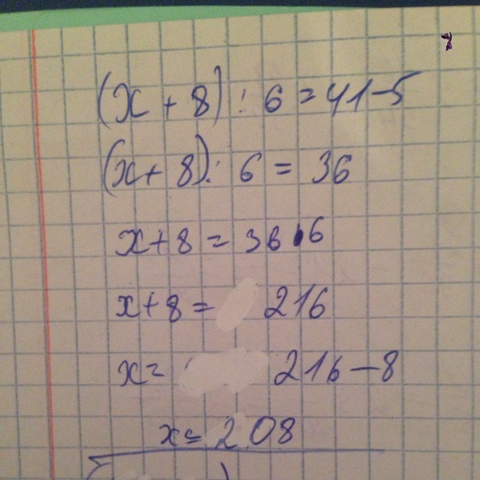 (x + 8) : 6 = 41-5
(x + 8) : 6 = 36
x + 8 = 36 • 6
x + 8 = 216
x = 216 - 8
x = 208